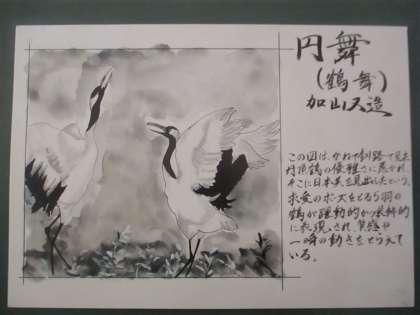 円舞
(鶴舞)
加山又造
この図は、かねて釧路で見た
丹頂鶴の優雅さに惹かれ、
そこに日本美を見出したという。
求愛のポーズをとる5羽の
鶴が躍動的かつ装飾的
に表現され、
一瞬の動きをとらえて
いる。